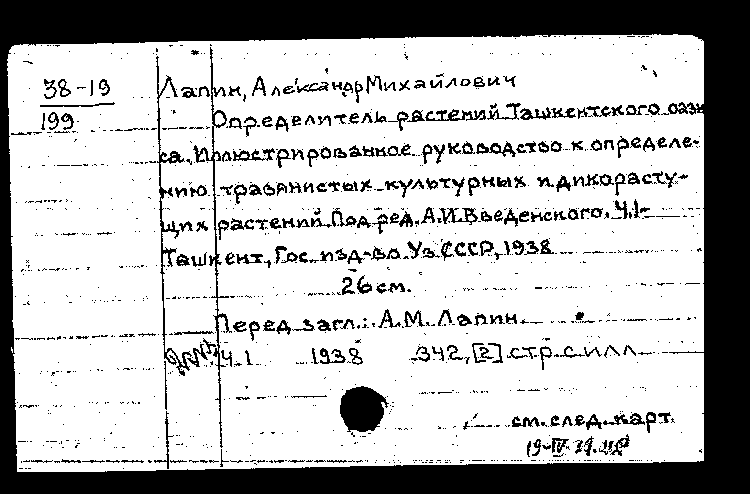 38-19
199
Лапин, Александр Михайлович
Определитель растений Ташкентского оази
са. Иллюстрированное руководство к определе-
нию травянистых культурных и дикорасту-
щих растений. Под ред. А.И. Введенского. Ч.1-
Ташкент, Гос. изд-во УзССР, 1938
26 см.
Перед загл.: А.М. Лапин.
Ч.1 1938 342, [2] стр. с илл.
см. след. карт.
19-IV-